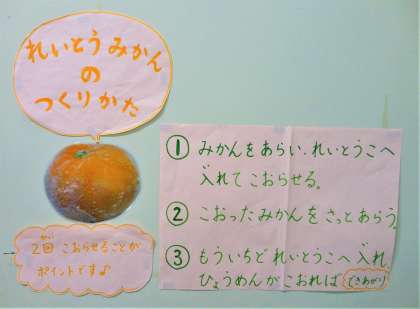 れいとうみかん
の
つくりかた
2回 こおらせることが
ポイントです♪
① みかんをあらい、れいとうこへ
入れてこおらせる。
② こおったみかんをさっとあらう。
③ もういちどれいとうこへ入れ
ひょうめんがこおれば できあがり